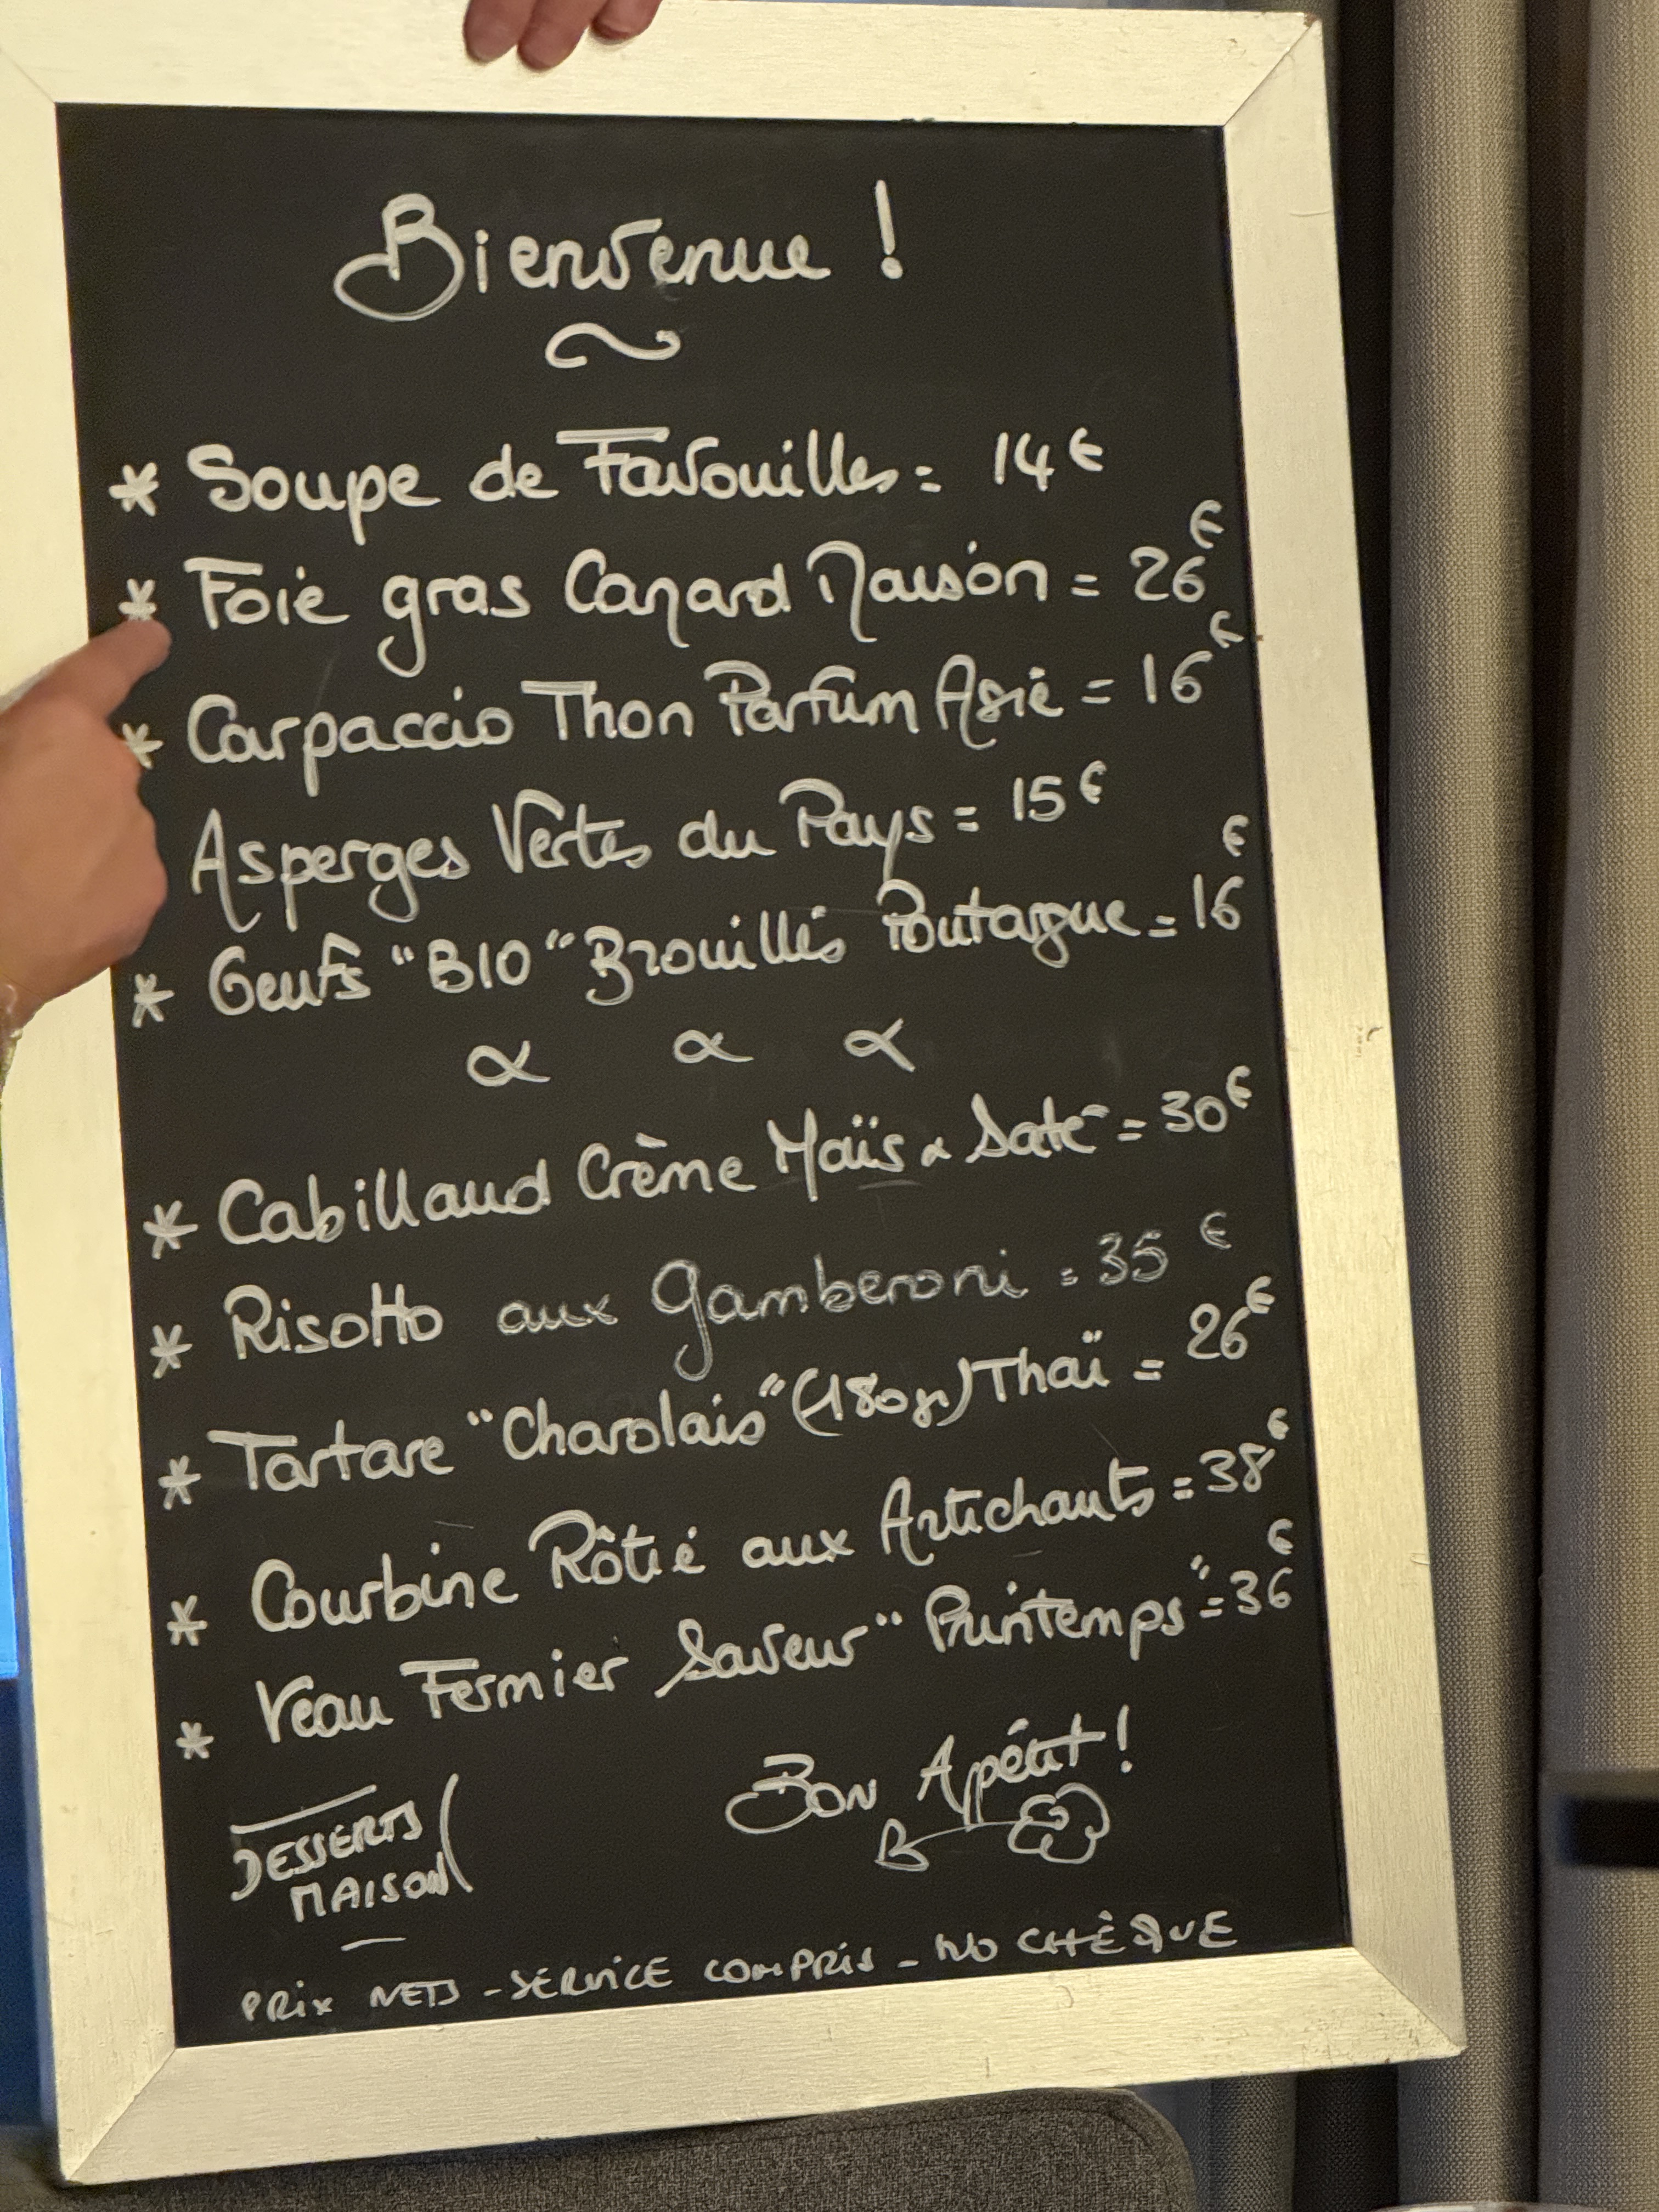 Bienvenue !
* Soupe de Favouilles = 14€
* Foie gras Canard Maison = 26€
* Carpaccio Thon Parfum Asie = 16€
Asperges Vertes du Pays = 15€
* Oeufs "BIO" Brouillés Poutargue = 16€
* Cabillaud Crème Maïs & Saté = 30€
* Risotto aux Gamberoni = 35 €
* Tartare "Charolais" (180gr) Thaï = 26€
* Courbine Rôtie aux Artichauts = 38€
* Veau Fermier Saveur "Printemps" = 36€
Bon Apétit !
DESSERTS
MAISON
PRIX NETS - SERVICE COMPRIS - NO CHÈQUE